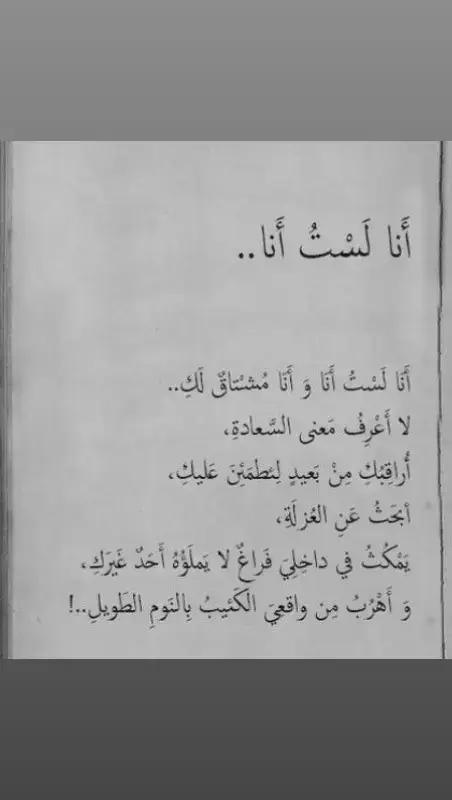 أَنا لَسْتُ أَنا..
أَنَا لَسْتُ أَنَا وَ أَنَا مُشتاقٌ لَكِ..
لا أَعْرِفُ مَعنى السَّعادةِ،
أُراقِبُكِ مِنْ بَعيدٍ لِئطمَئِنَ عَليكِ،
أبحَثُ عَنِ العُزلَةِ،
يَمْكُثُ في داخِلِيَ فَراغٌ لا يَملَؤُهُ أَحَدٌ غَيرَكِ،
وَ أَهْرُبُ مِن واقعِيَ الكَئيبُ بِالنَومِ الطَويلِ..!